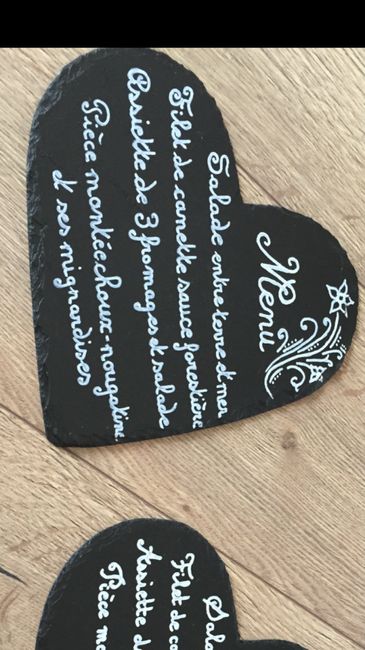 Menu
Salade entre terre et mer
Filet de canette sauce forestière
Assiette de 3 fromages et salade
Pièce montée choux-nougatine
et ses mignardises
Sala
Filet de ca
Assiette d
Pièce mo